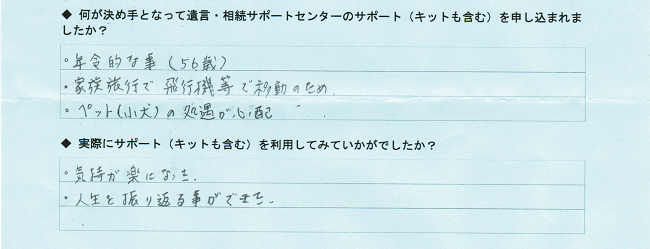 ◆ 何が決め手となって遺言・相続サポートセンターのサポート（キットも含む）を申し込まれま
したか？
・年令的な事（56歳）
・家族旅行で 飛行機等で移動のため
・ペット（小犬）の処遇が心配
◆ 実際にサポート（キットも含む）を利用してみていかがでしたか？
・気持が楽になった.
・人生を振り返る事ができた.